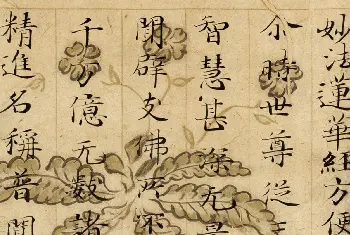 妙法蓮華經方便
尒時世尊從三
智慧甚深无量
聞辟支佛所不
千万億无數諸
精進名稱普聞